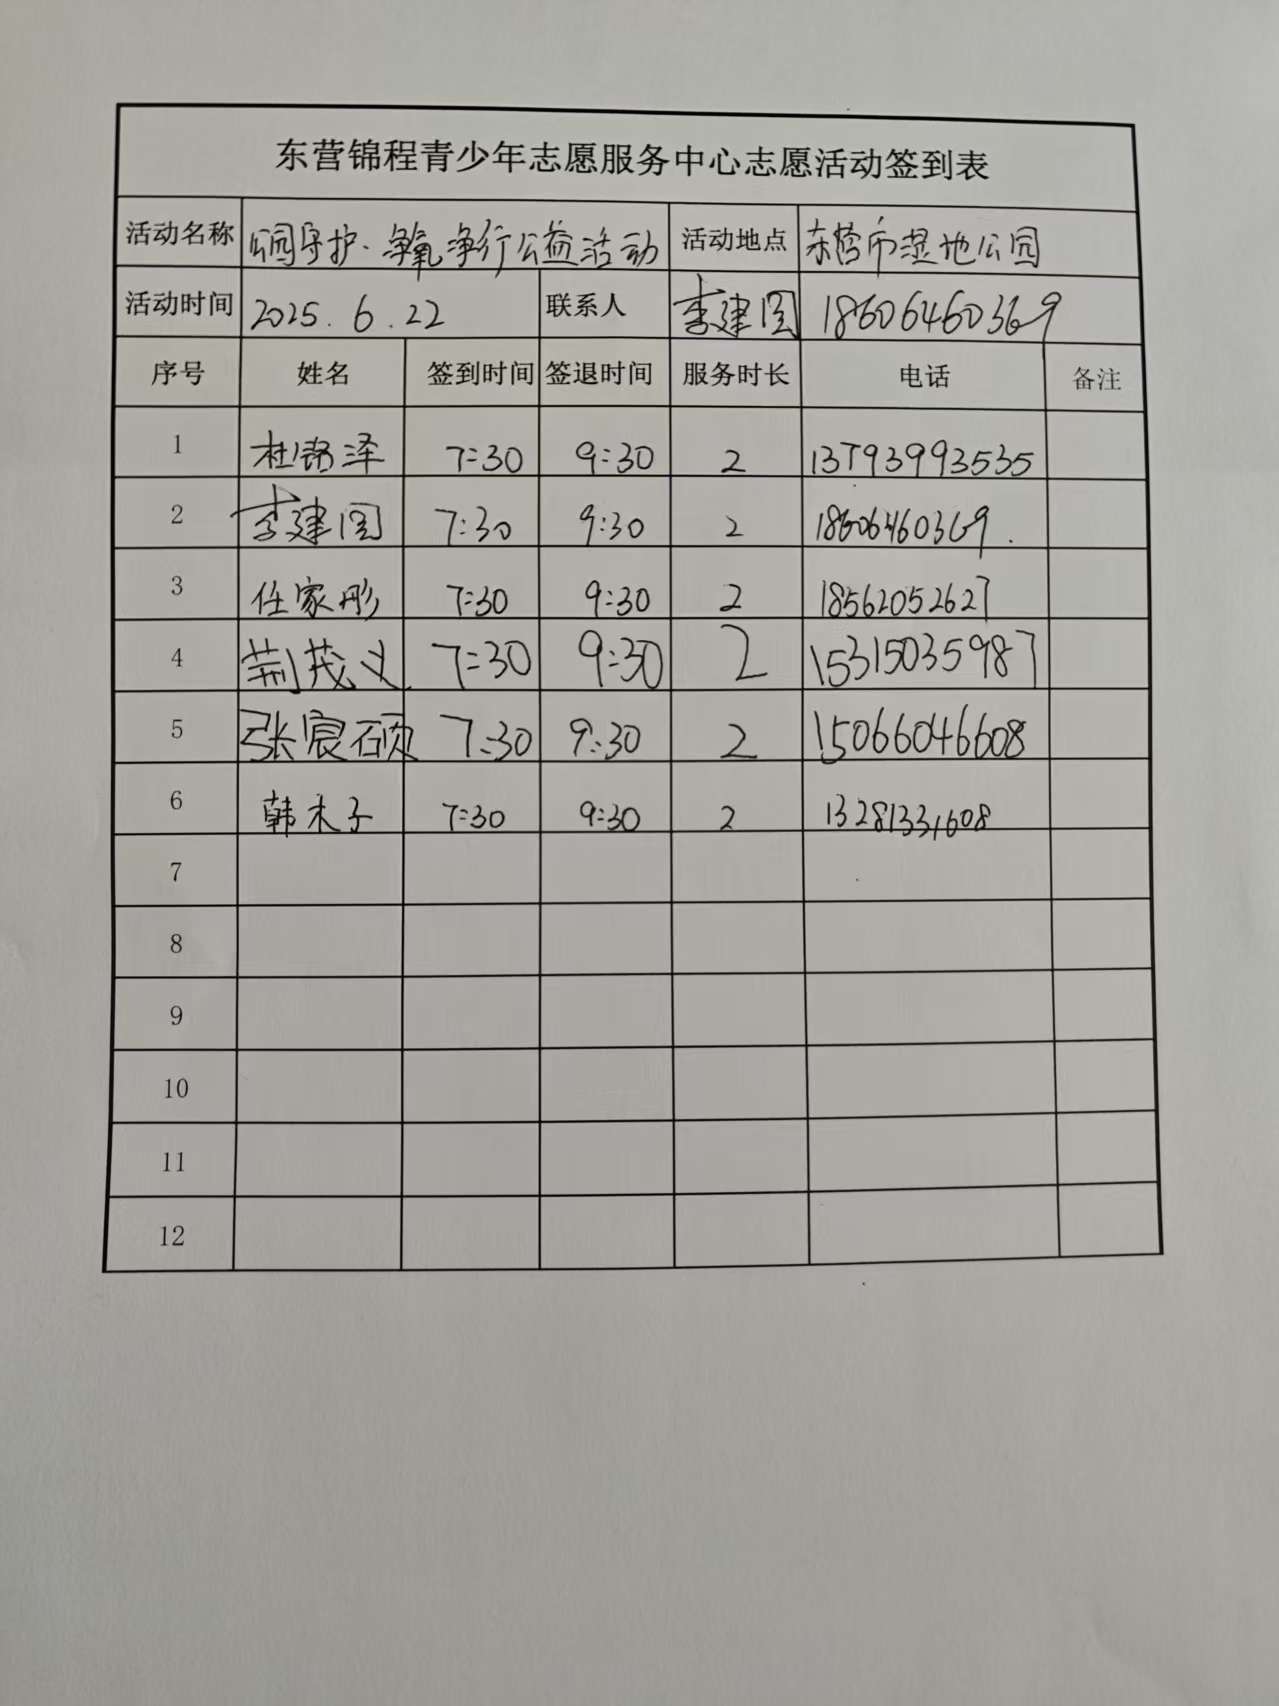 东营锦程青少年志愿服务中心志愿活动签到表
活动名称 公园守护·净氧净行公益活动 活动地点 东营市湿地公园
活动时间 2025.6.22 联系人 李建国 18606460369
序号 姓名 签到时间 签退时间 服务时长 电话 备注
1 杜锦泽 7:30 9:30 2 13793993535
2 李建国 7:30 9:30 2 18606460369.
3 任家彤 7:30 9:30 2 18562052627
4 荆茂义 7:30 9:30 2 15315035987
5 张宸硕 7:30 9:30 2 15066046608
6 韩木子 7:30 9:30 2 13281331608
7
8
9
10
11
12